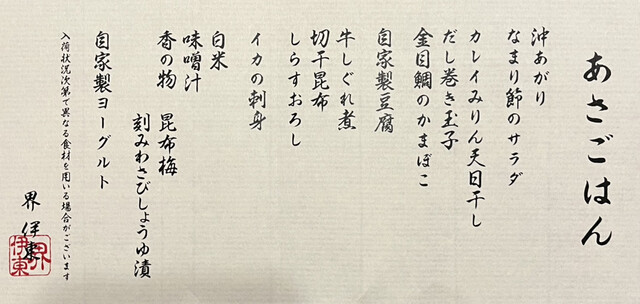 あさごはん
沖あがり
なまり節のサラダ
カレイみりん天日干し
だし巻き玉子
金目鯛のかまぼこ
自家製豆腐
牛しぐれ煮
切干昆布
しらすおろし
イカの刺身
白米
味噌汁
香の物 昆布梅
刻みわさびしょうゆ漬
自家製ヨーグルト
入荷状況次第で異なる食材を用いる場合がございます
界 伊東
界伊東